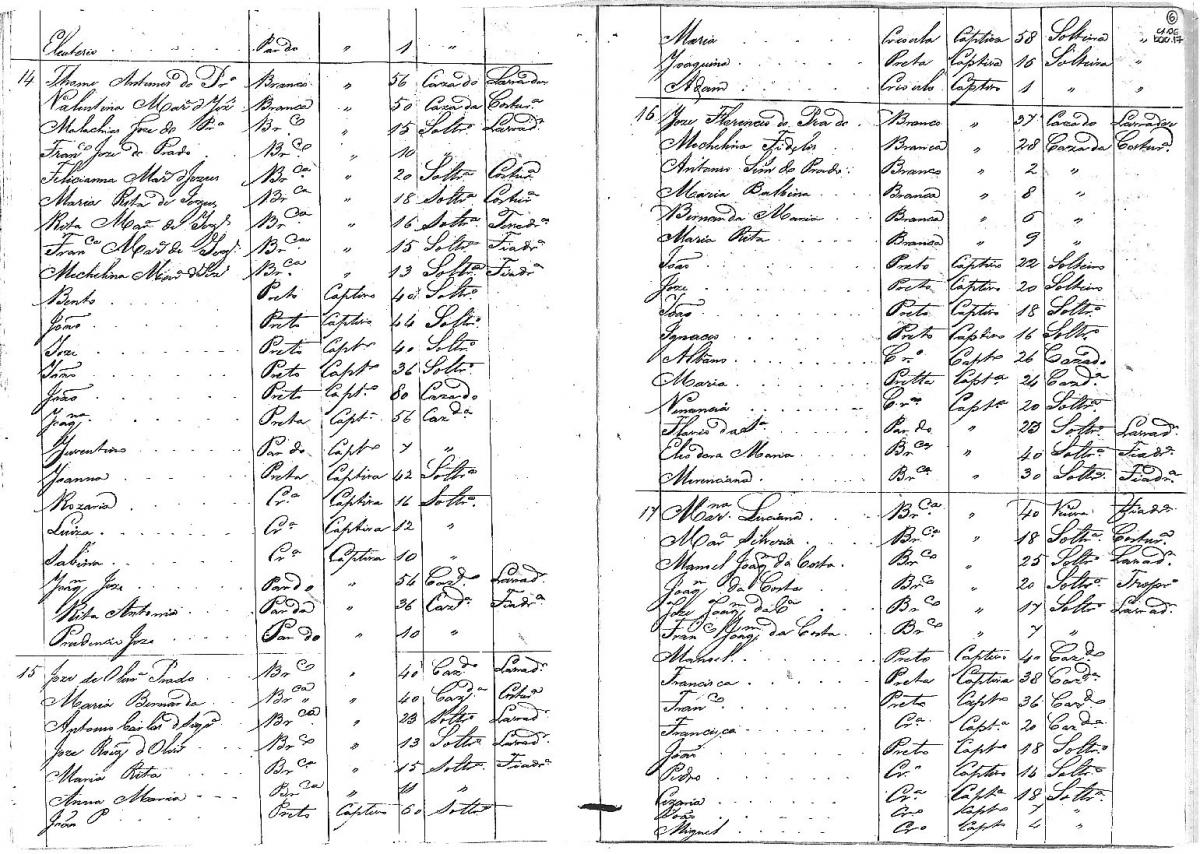 Eleuterio Pardo " 1 "
14 Antunes do Branco " 56 Cazado Lavrador
Valentina Mar.ª d Branca " 50 Cazada Costur.ª
Malachias Joze do Br.co " 15 Soltr.º Lavrad.r
Fran.co Joze do Prado Br.co " 10
Felicianna Mar.ª d Jezus Br.ca " 20 Soltr.ª Costur.ª
Maria Rita de Jezus Br.ca " 18 Soltr.ª Costur.ª
Rita Mar.ª de Br.ca " 16 Soltr.ª Fiadr.ª
Fran.ca Mar.ª de Br.ca " 15 Soltr.ª Fiadr.ª
Michelina Mar.ª Br.ca " 13 Soltr.ª Fiadr.ª
Bento Preto Captivo 40 Soltr.º
João Preto Captivo 44 Soltr.º
Joze Preto Capt.º 40 Soltr.º
João Preto Capt.º 36 Soltr.º
João Preto Capt.º 80 Cazado
Joaq.na Preta Capt.ª 56 Caz.da
Juventino Pardo Capt.º 7 "
Joanna Preta Captiva 42 Soltr.ª
Rozaria Cr.ª Captiva 16 Soltr.ª
Luiza Cr.ª Captiva 12 "
Sabina Cr.ª Captiva 10 "
Joaq.m Joze Pardo " 56 Caz.do Lavrad.r
Rita Antonia Parda " 36 Caz.da Fiadr.ª
Prudencio Joze Pardo " 10 "
15 Joze de Olivr.ª Prado Br.co " 40 Caz.do Lavrad.r
Maria Bernarda Br.ca " 40 Caz.da Costur.ª
Antonio Carlos Br.co " 23 Soltr.º Lavrad.r
Joze Roiz d Olivr.ª Br.co " 13 Soltr.º Lavrad.r
Maria Rita Br.ca " 15 Soltr.ª Fiadr.ª
Anna Maria Br.ca " 11 "
João P Preto Captivo 60 Soltr.º
6
DOC. 17
Maria Creoula Captiva 58 Solteira "
Joaquina Preta Captiva 16 Solteira "
Adam Creoulo Captivo 1 " "
16 Joze Florencio do Prado Branco " 37 Cazado Lavrador
Mechelina Fidelis Branca " 28 Cazada Costur.ª
Antonio do Prado Branco " 2 "
Maria Balbina Branca " 8 "
Bernarda Maria Branca " 6 "
Maria Rita Branca " 9 "
João Preto Captivo 22 Solteiro
Joze Preto Captivo 20 Solteiro
João Preto Captivo 18 Soltr.º
Ignacio Preto Captivo 16 Soltr.º
Albano Cr.º Capt.º 26 Cazado
Maria Pretta Capt.ª 24 Caz.da
Venancia Cr.ª Capt.ª 20 Soltr.ª
Flavio Pardo " 23 Soltr.º Lavrad.r
Eliodora Maria Br.ca " 40 Soltr.ª Fiadr.ª
Merenciana Br.ca 30 Soltr.ª Fiadr.ª
17 Mar.na Luciana Br.ca " 40 Viuva Fiadr.ª
Mar.ª Silveria Br.ca " 18 Soltr.ª Costur.ª
Manoel Joaq.m da Costa Br.co " 25 Soltr.º Lavrad.r
Joaq.m da Costa Br.co " 20 Soltr.º
Joze Joaq.m da C.ª Br.co " 17 Soltr.º Lavrad.r
Fran.co Joaq.m da Costa Br.co " 7 "
Manoel Preto Captivo 40 Caz.do
Francisca Preta Captiva 38 Caz.da
Fran.co Preto Capt.º 36 Caz.do
Francisca Cr.ª Capt.ª 20 Caz.da
João Preto Capt.º 18 Soltr.º
Pedro Cr.º Capt.º 14 Soltr.º
Cezaria Cr.ª Capt.ª 18 Soltr.ª
João Cr.º Capt.º 7 "
Miguel Cr.º Capt.º 4 "